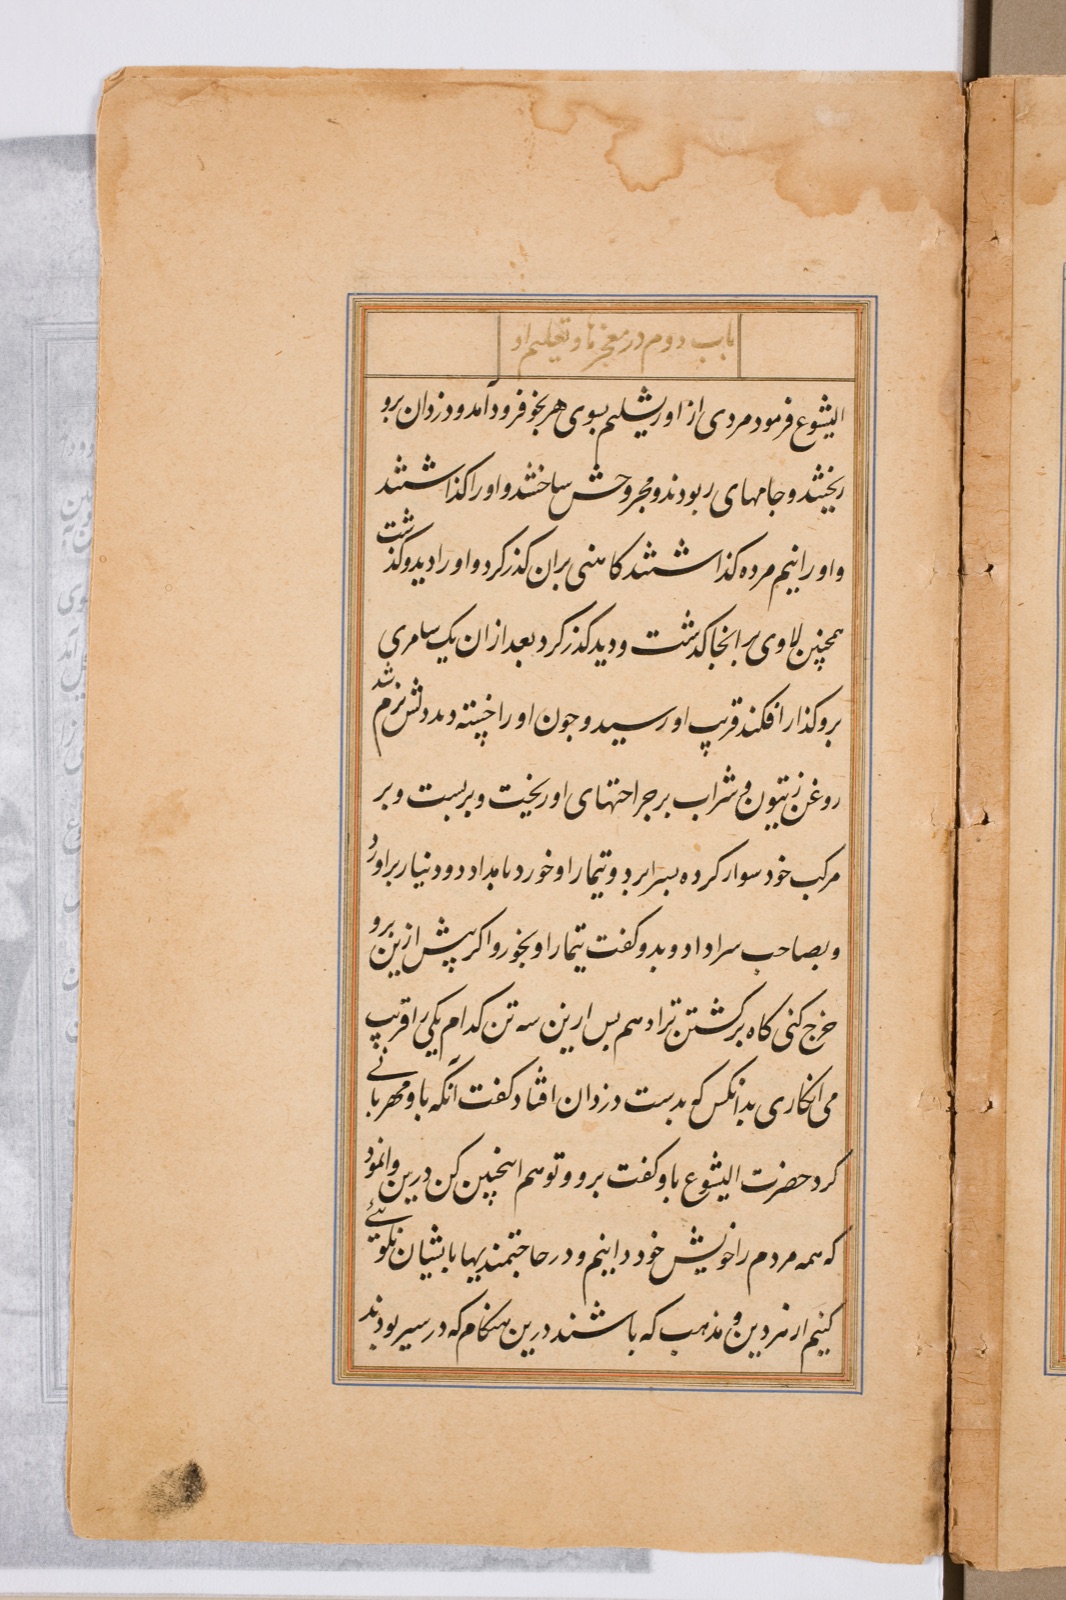 باب دوم در معجزها و تعلیم او
الیشوع فرمود مردی از اورشلیم بسوی هریخو فرود آمد و دزدان برو
ریختند و جامهای ربودند و مجروحش ساختند و اورا کذاشتند
و اورا نیم مرده کذاشتند کاهنی بران کذر کرد و اورا دید و کذشت
همچنین لاوی برانجا کذشت و دید کذر کرد بعد ازان یک سامری
برو کذار افکند قریب او رسید و جون اورا خسته دید دلش نرم شد
روغن زیتون و شراب بر جراحتهای او ریخت و بربست و بر
مرکب خود سوار کرده بسرا برد و تیمار او خورد بامداد دو دنیار براورد
و بصاحب سرا داد و بدو کفت تیمار او بخور و اکر پیش ازین برو
خرج کنی کاه برکشتن ترا دهم بس ازین سه تن کدام یکی را قریب
می انکاری بدانکس که بدست دزدان افتاد کفت آنکه باو مهربانی
کرد حضرت الیشوع باو کفت برو و تو هم اینچنین کن درین وانمود
که همه مردم را خویش خود دانیم و در حاجتمندیها بایشان نکوئی
کنیم از هر دین و مذهب که باشند درین هنکام که در سیر بودند